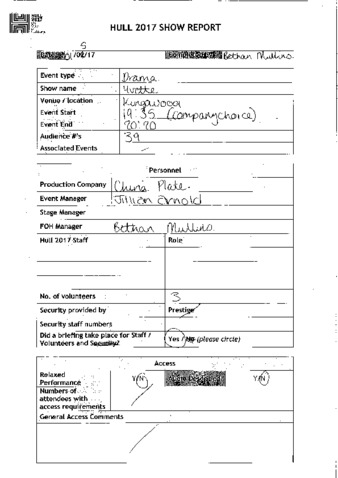 HULL 2017 SHOW REPORT
5
/02/17
Bethan Mullins
Event type Drama
Show name Yvette
Venue / location Kingswood
Event Start 19:35 (company choice)
Event End 20:20
Audience #'s 39
Associated Events -
Personnel
Production Company China Plate.
Event Manager Jillian Arnold
Stage Manager
FOH Manager Bethan Mullins.
Hull 2017 Staff Role
No. of volunteers 3
Security provided by Prestige
Security staff numbers
Did a briefing take place for Staff / Yes / No (please circle)
Volunteers and Security?
Access
Relaxed Y/N Y/N
Performance
Numbers of
attendees with
access requirements
General Access Comments